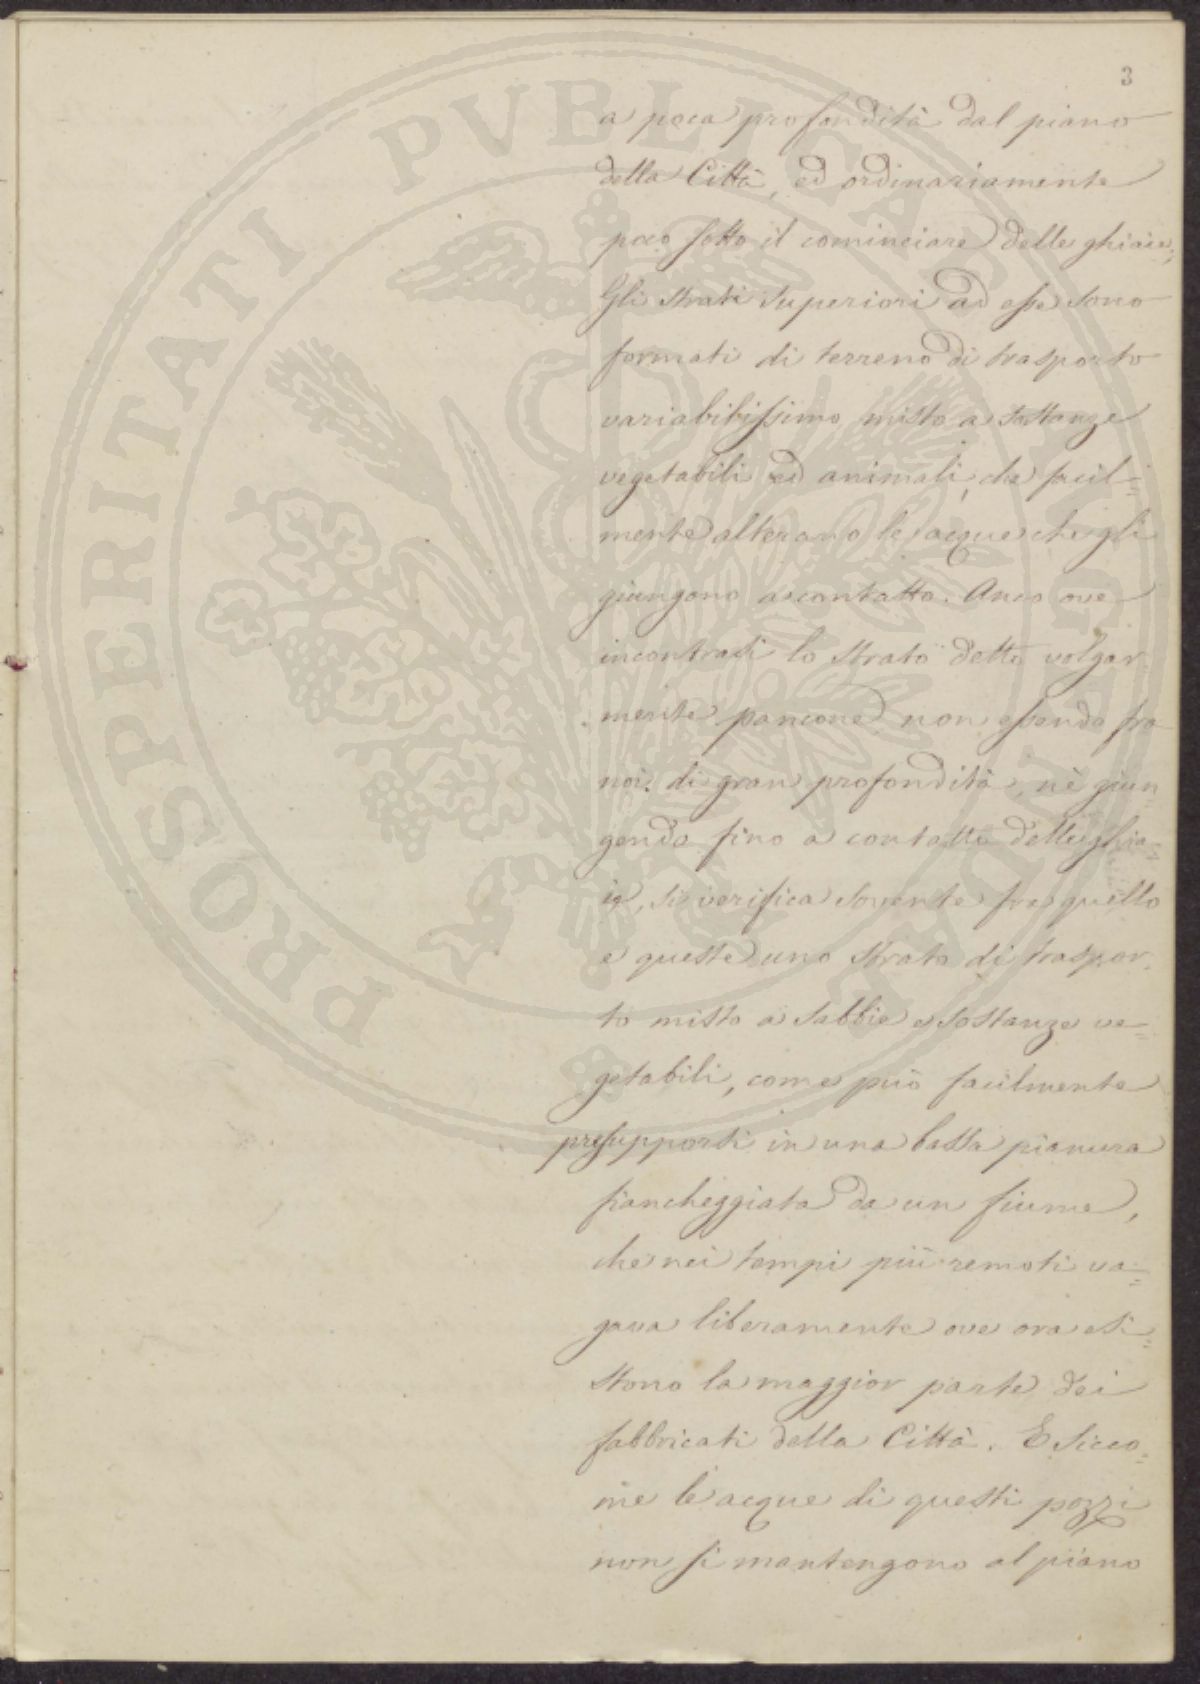 3
a poca profondità dal piano
della Città, ed ordinariamente
poco sotto il cominciare delle ghiaie;
Gli strati superiori ad esse sono
formati di terreno di trasporto
variabilissimo misto a sostanze
vegetabili ed animali, che facil=
mente alterano le acque che gli
giungono a contatto. Anco ove
incontrasi lo strato detto volgar
mente pancone non essendo fra
noi di gran profondità, nè giun
gendo fino a contatto delle ghia=
ie, si verifica sovente fra quello
e queste uno strato di traspor=
to misto a sabbie e sostanze ve=
getabili, come può facilmente
presupporsi in una bassa pianura
fiancheggiata da un fiume,
che nei tempi più remoti va=
gava liberamente ove ora esi=
stono la maggior parte dei
fabbricati della Città. E sicco=
me le acque di questi pozzi
non si mantengono al piano
PROSPERITATI PVBLICAE AVGENDAE